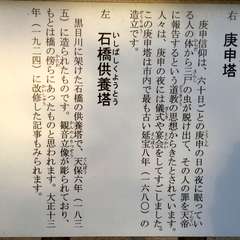 右
庚申塔
庚申信仰は、六十日ごとの庚申の日の夜に眠ってい
る人の体から三尸の虫が脱け出て、その人の罪を天帝
に報告するという道教の思想からきたとされています。
人々は、庚申の夜には儀式や宴会をしてすごしました。
この庚申塔は市内で最も古い延宝八年（一六八〇）の
造立です。
左
いしばしくようとう
石橋供養塔
黒目川に架けた石橋の供養塔で、天保六年（一八三
五）に造られたものです。観音立像が彫られており、
もとは橋の傍らにあったものと思われます。大正十三
年（一九二四）に改修した記事もみられます。